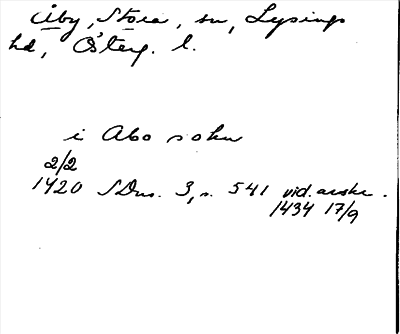 Åby, Stora, sn, Lysings
hd, Österg. l.
i Abo sokn
2/2
1420 SDns. 3, s. 541 vid. avskr.
1434 17/9